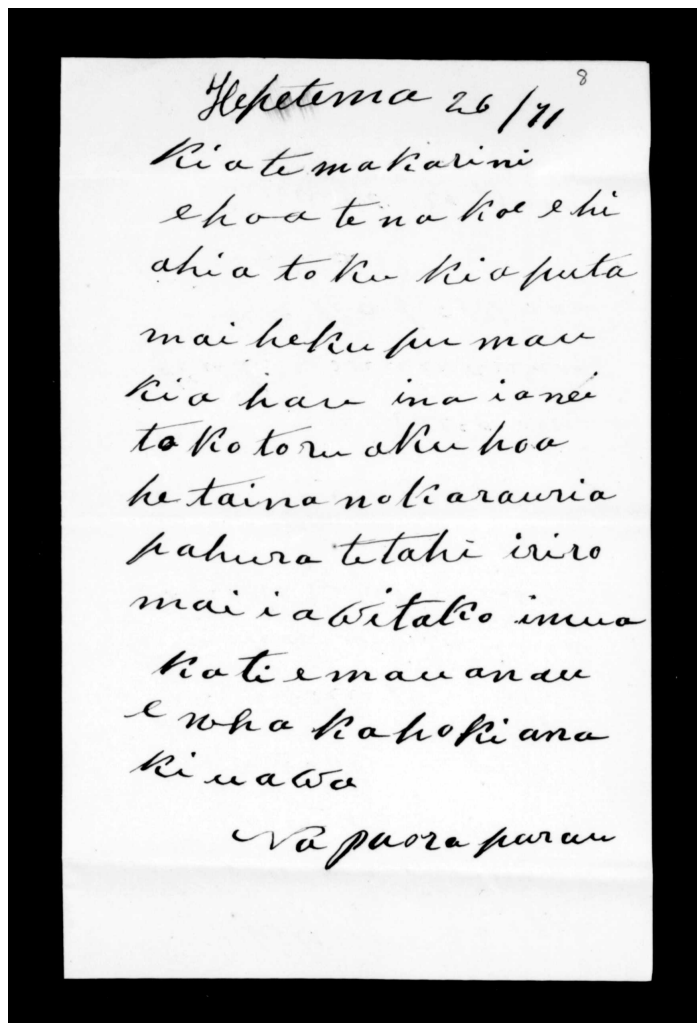 8
Hepetema 26/71
Kia te makarini
ehoa te na koe e hi
ahia toku kia puta
mai heku pu mau
kia hau ina ianei
tokotoru aku hoa
he taina no karauria
pahura tetahi iriro
mai i a witako imua
Kati e mau anau
e wha ka hoki ana
ki uawa
Na paora parau